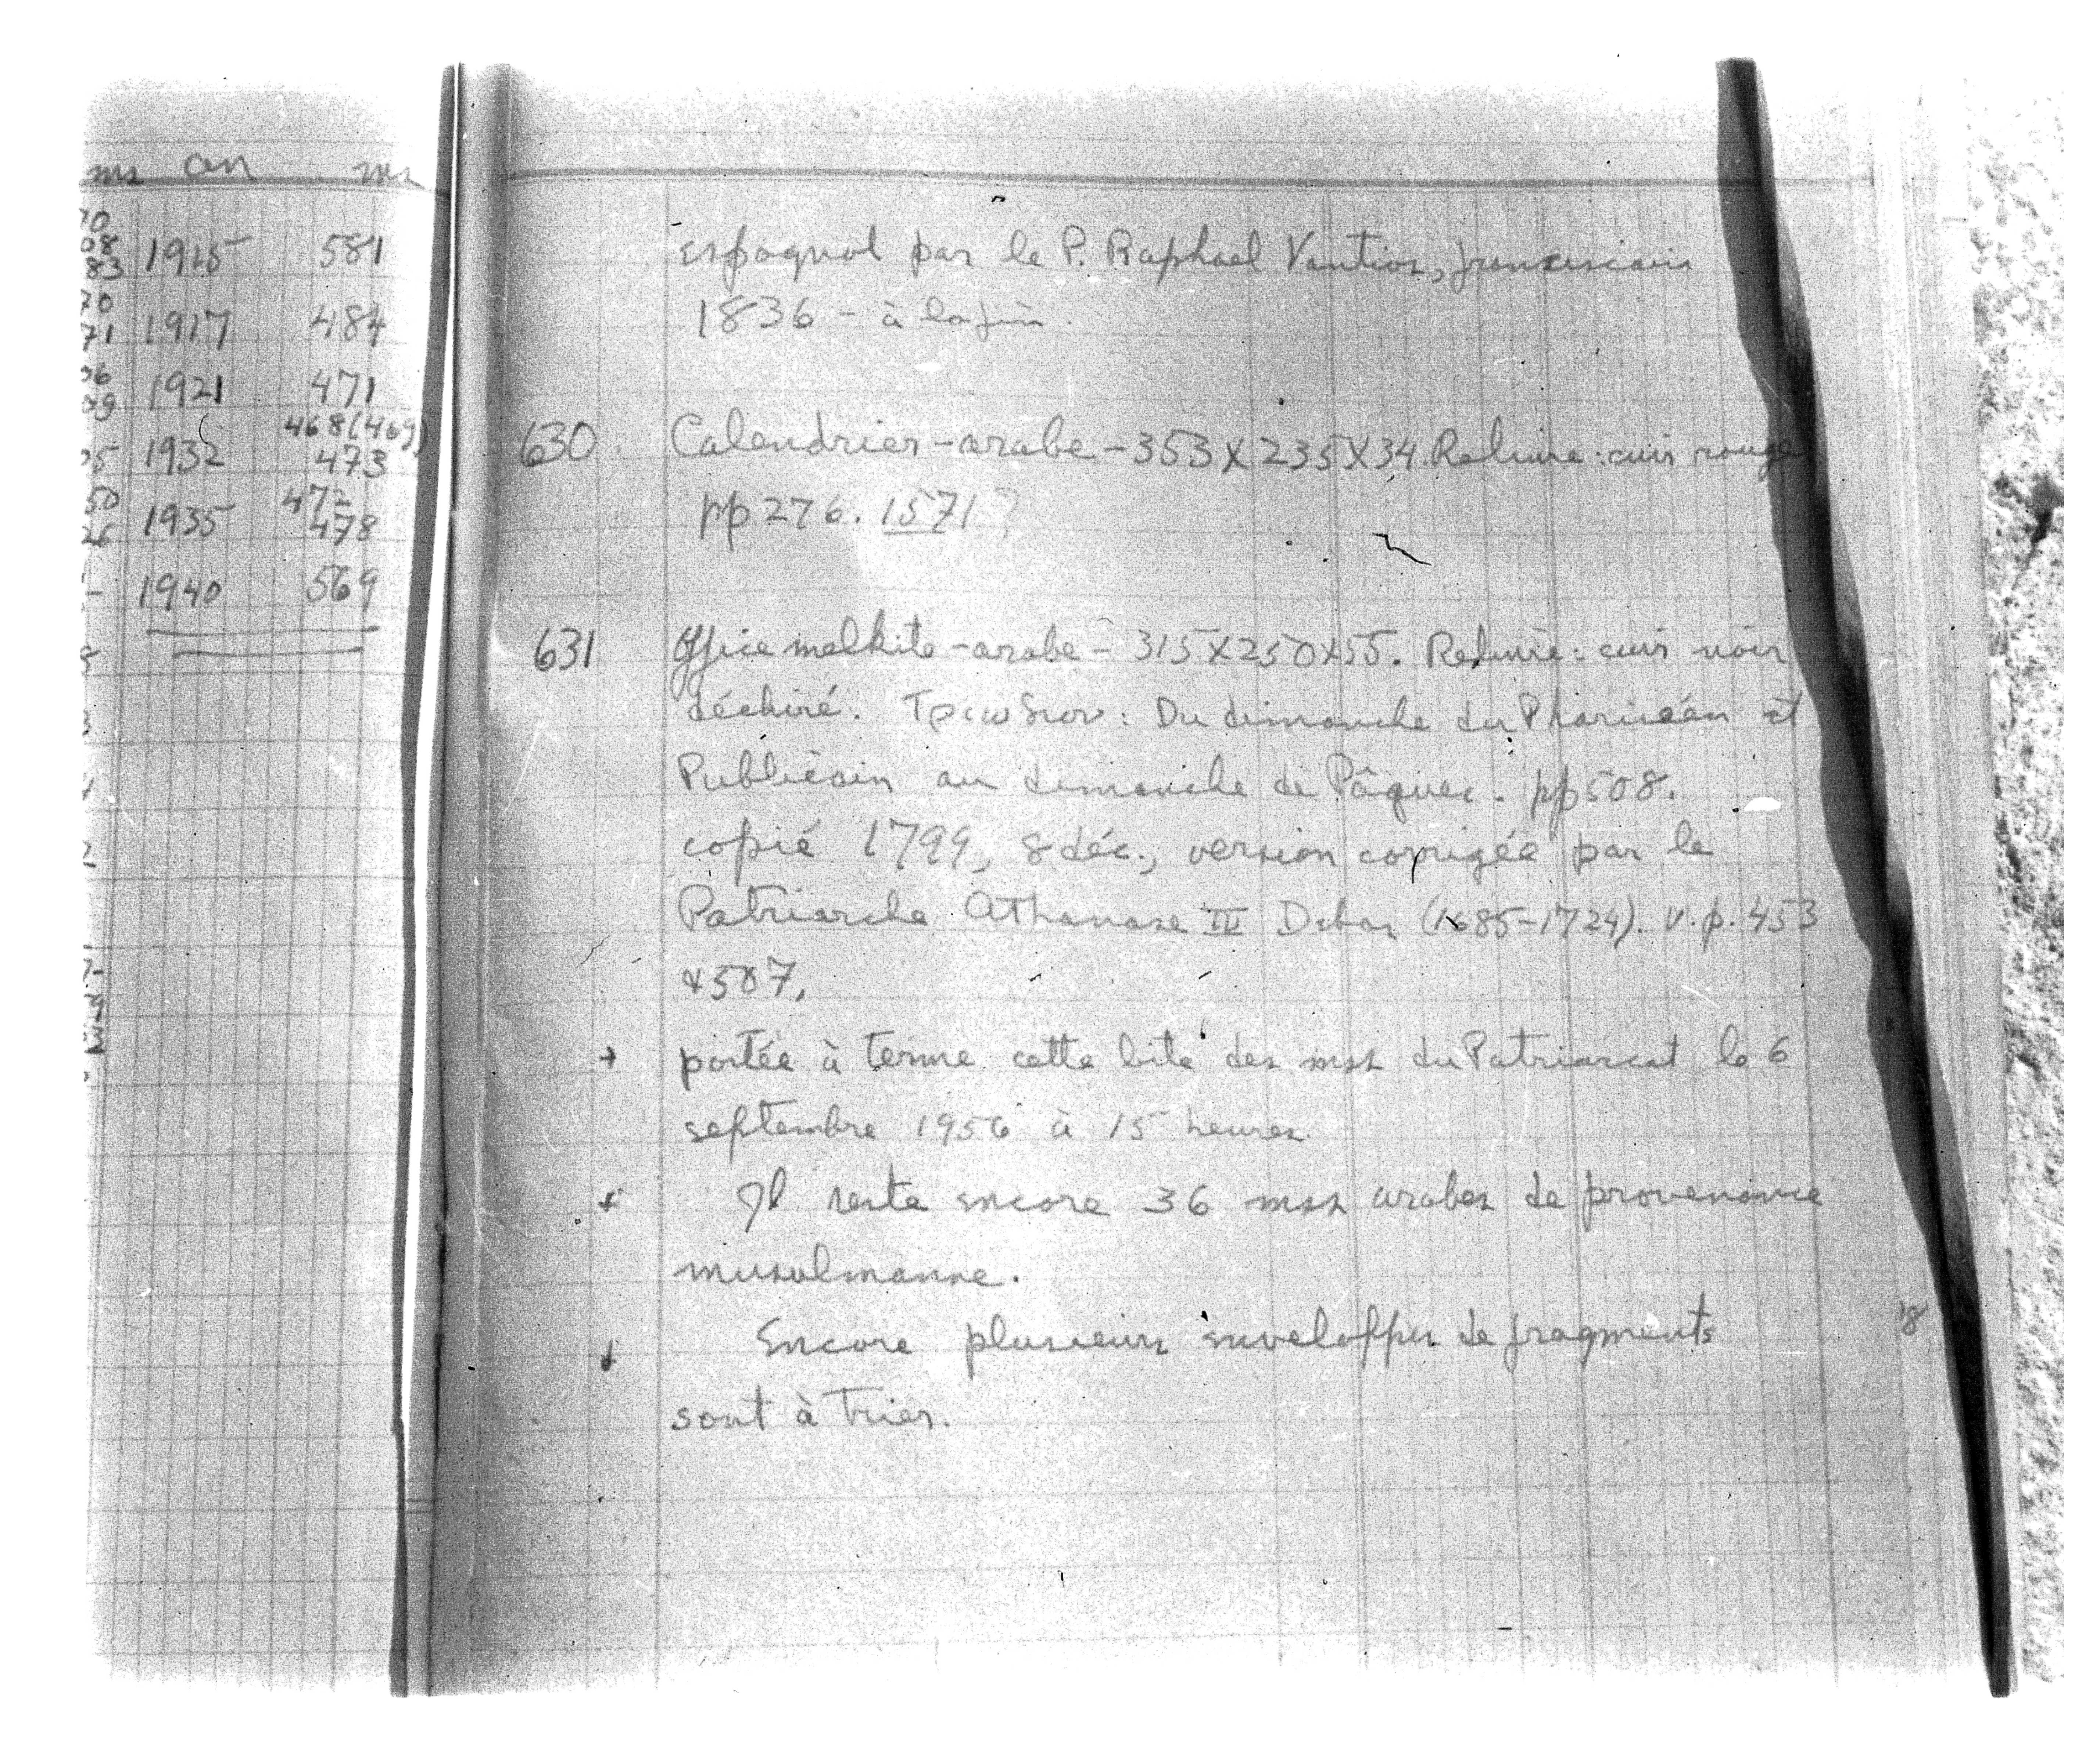 ms an ms
70
08
83 1915 581
70
71 1917 484
06
09 1921 471
468(469)
05 1932 473
50 472
26 1935 478
1940 569
espagnol par le P. Raphael, franciscain
1836 - à la fin.
630 Calendrier - arabe - 353 X 235 X 34. Reliure: cuir rouge
pp 276. 1571?
631 Office melkite - arabe - 315 X 250 X 55. Reliure: cuir noir
déchiré. Τριώδιον: Du dimanche du Phariséen et
Publicain au dimanche de Pâques. pp 508.
copié 1799, 8 déc., version corrigée par le
Patriarche Athanase III Debas (1685-1724). v. p. 453
& 507.
+ portée à terme cette liste des mss du Patriarcat le 6
septembre 1956 à 15 heures.
+ Il reste encore 36 mss arabes de provenance
musulmanne.
+ Encore plusieurs enveloppes de fragments
sont à trier.